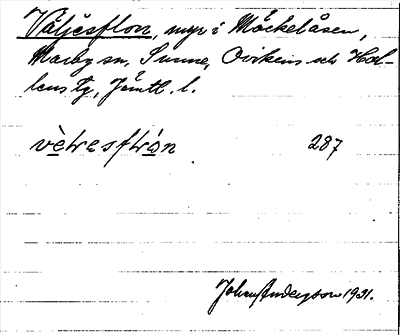 Väljesflon, myr i Möckelåsen,
Marby sn, Sunne, Ovikens och Hal-
lens tg, Jämtl. l.
vètresflo̊n 287
Johan Anderson 1931.